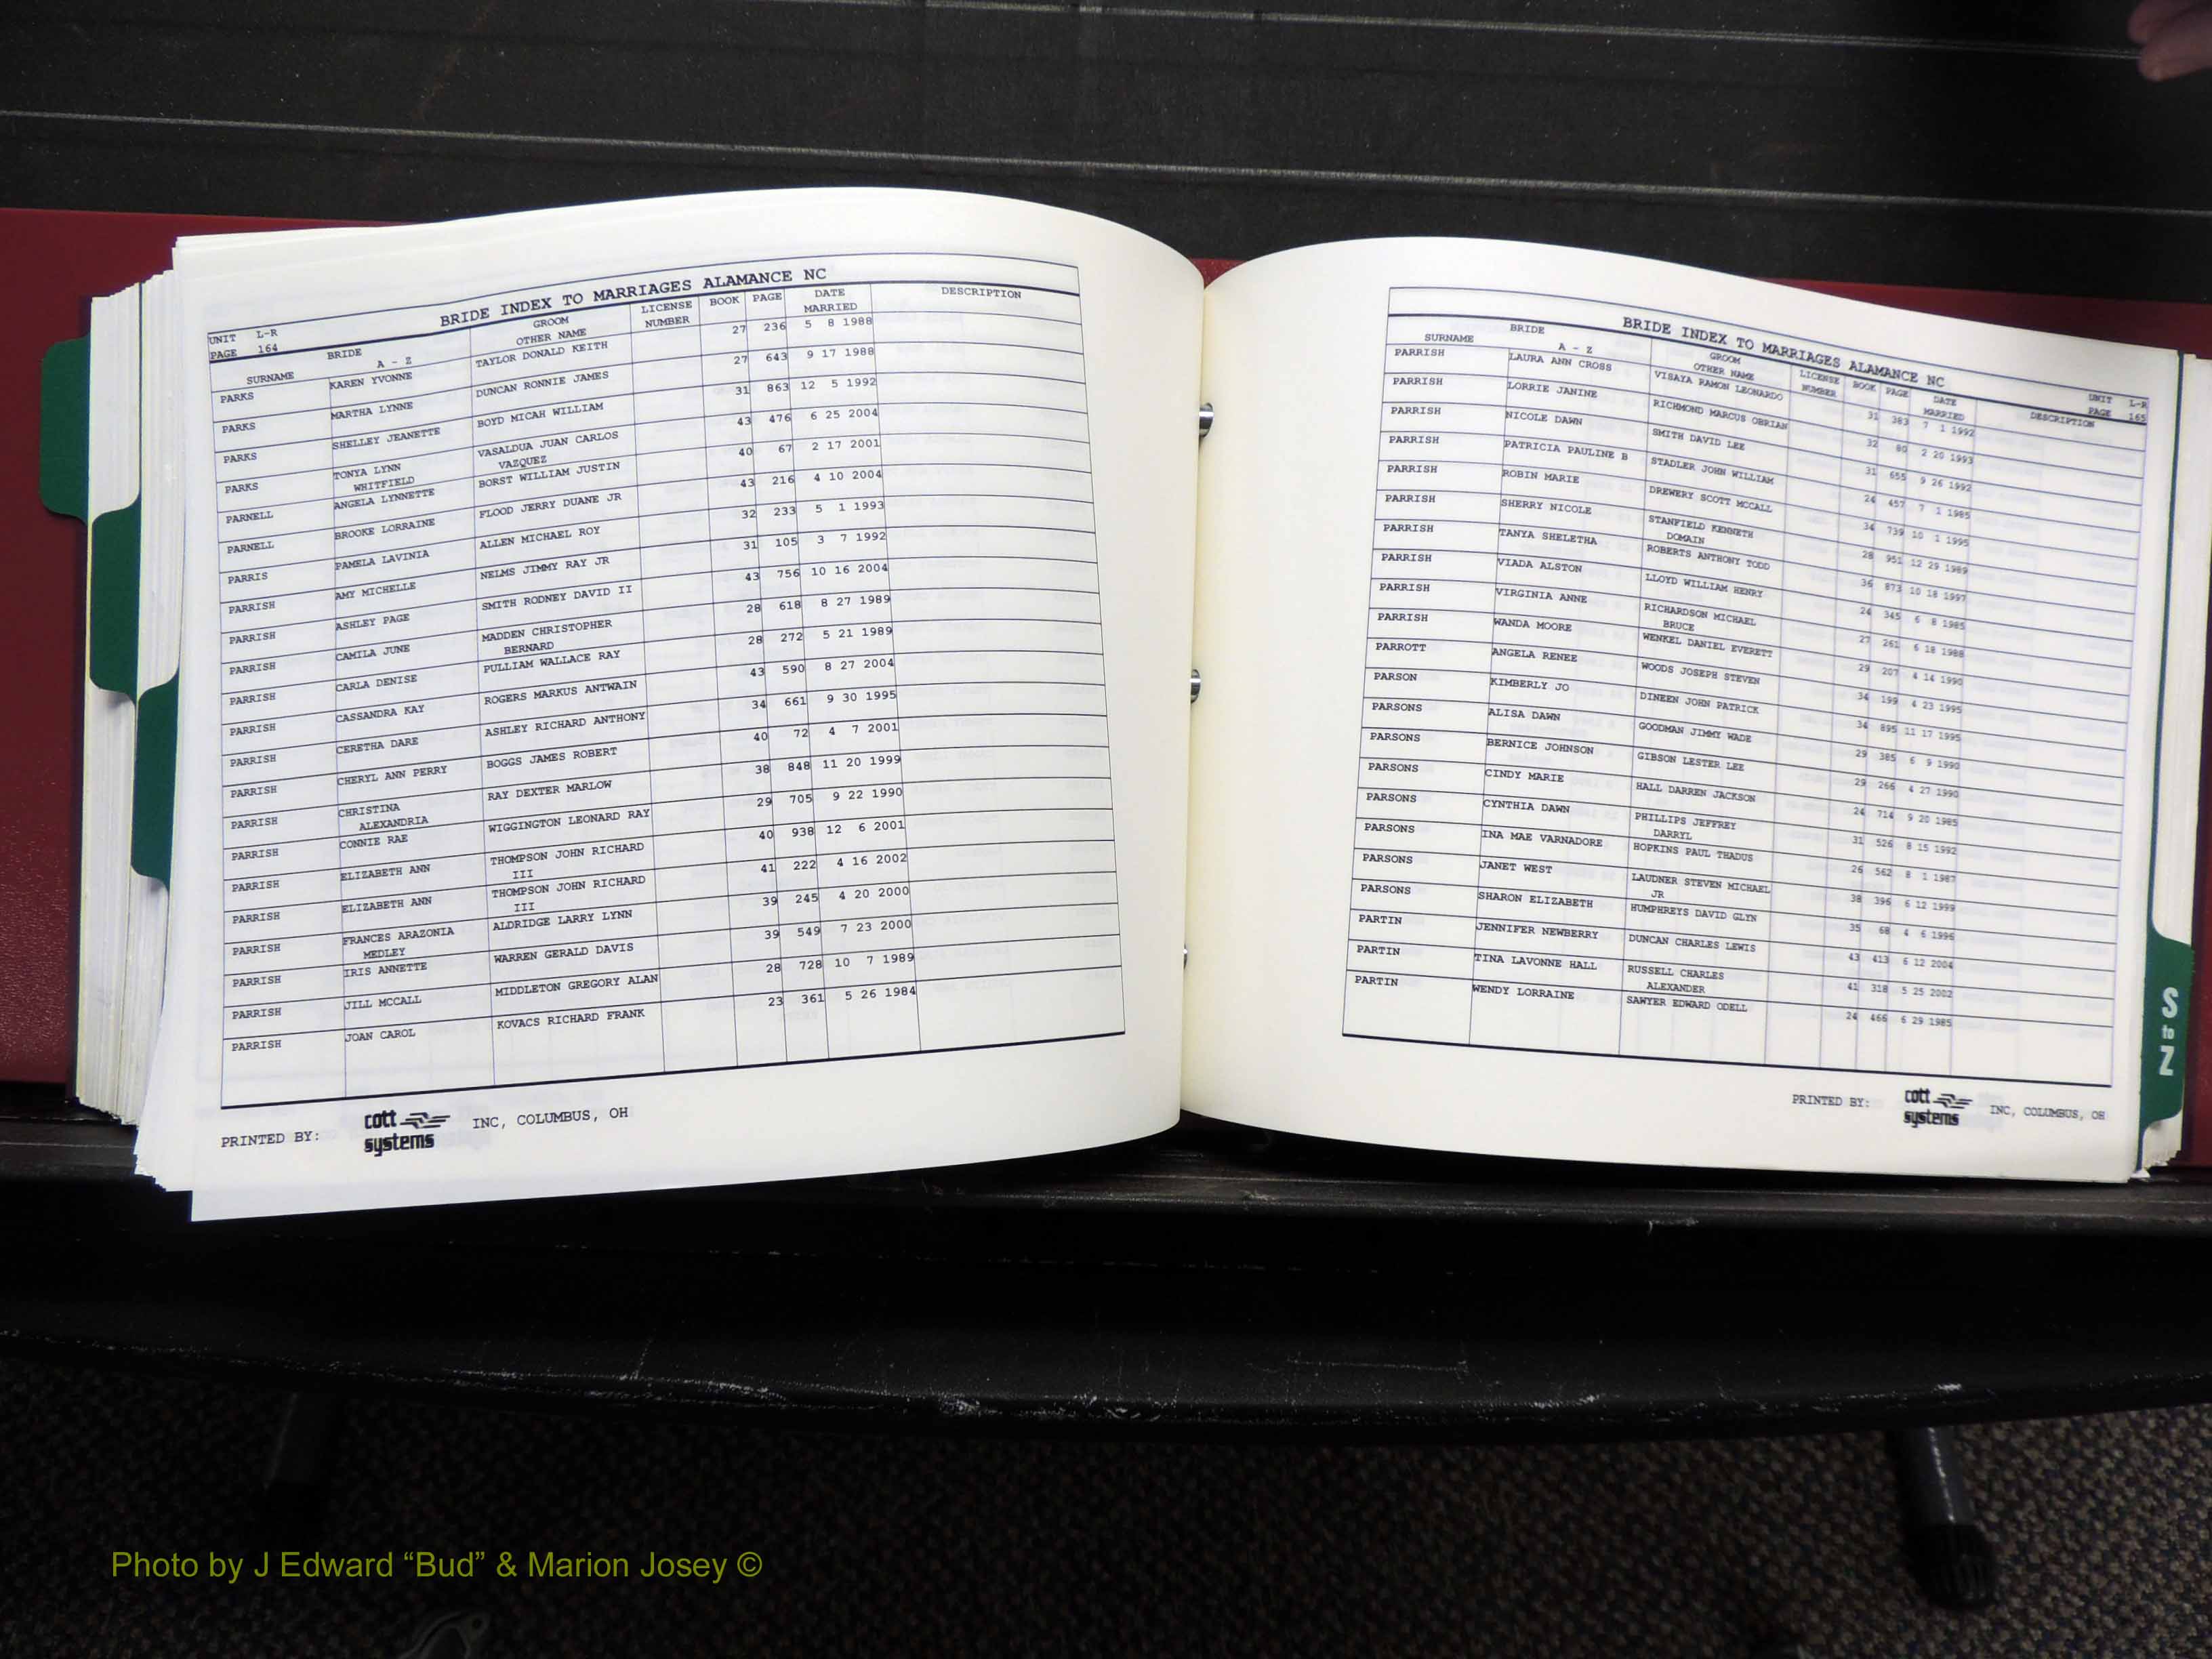 UNIT L-R
PAGE 164
BRIDE INDEX TO MARRIAGES ALAMANCE NC
SURNAME BRIDE A - Z GROOM OTHER NAME LICENSE NUMBER BOOK PAGE DATE MARRIED DESCRIPTION
PARKS KAREN YVONNE TAYLOR DONALD KEITH 27 236 5 8 1988
PARKS MARTHA LYNNE DUNCAN RONNIE JAMES 27 643 9 17 1988
PARKS SHELLEY JEANETTE BOYD MICAH WILLIAM 31 863 12 5 1992
PARKS TONYA LYNN WHITFIELD VASALDUA JUAN CARLOS VAZQUEZ 43 476 6 25 2004
PARNELL ANGELA LYNNETTE BORST WILLIAM JUSTIN 40 67 2 17 2001
PARNELL BROOKE LORRAINE FLOOD JERRY DUANE JR 43 216 4 10 2004
PARRIS PAMELA LAVINIA ALLEN MICHAEL ROY 32 233 5 1 1993
PARRISH AMY MICHELLE NELMS JIMMY RAY JR 31 105 3 7 1992
PARRISH ASHLEY PAGE SMITH RODNEY DAVID II 43 756 10 16 2004
PARRISH CAMILA JUNE MADDEN CHRISTOPHER BERNARD 28 618 8 27 1989
PARRISH CARLA DENISE PULLIAM WALLACE RAY 28 272 5 21 1989
PARRISH CASSANDRA KAY ROGERS MARKUS ANTWAIN 43 590 8 27 2004
PARRISH CERETHA DARE ASHLEY RICHARD ANTHONY 34 661 9 30 1995
PARRISH CHERYL ANN PERRY BOGGS JAMES ROBERT 40 72 4 7 2001
PARRISH CHRISTINA ALEXANDRIA RAY DEXTER MARLOW 38 848 11 20 1999
PARRISH CONNIE RAE WIGGINGTON LEONARD RAY 29 705 9 22 1990
PARRISH ELIZABETH ANN THOMPSON JOHN RICHARD III 40 938 12 6 2001
PARRISH ELIZABETH ANN THOMPSON JOHN RICHARD III 41 222 4 16 2002
PARRISH FRANCES ARAZONIA MEDLEY ALDRIDGE LARRY LYNN 39 245 4 20 2000
PARRISH IRIS ANNETTE WARREN GERALD DAVIS 39 549 7 23 2000
PARRISH JILL MCCALL MIDDLETON GREGORY ALAN 28 728 10 7 1989
PARRISH JOAN CAROL KOVACS RICHARD FRANK 23 361 5 26 1984
PRINTED BY: cott systems INC, COLUMBUS, OH
BRIDE INDEX TO MARRIAGES ALAMANCE NC
UNIT L-R
PAGE 165
SURNAME BRIDE A - Z GROOM OTHER NAME LICENSE NUMBER BOOK PAGE DATE MARRIED DESCRIPTION
PARRISH LAURA ANN CROSS VISAYA RAMON LEONARDO 31 383 7 1 1992
PARRISH LORRIE JANINE RICHMOND MARCUS OBRIAN 32 80 2 20 1993
PARRISH NICOLE DAWN SMITH DAVID LEE 31 655 9 26 1992
PARRISH PATRICIA PAULINE B STADLER JOHN WILLIAM 24 457 7 1 1985
PARRISH ROBIN MARIE DREWERY SCOTT MCCALL 34 739 10 1 1995
PARRISH SHERRY NICOLE STANFIELD KENNETH DOMAIN 28 951 12 29 1989
PARRISH TANYA SHELETHA ROBERTS ANTHONY TODD 36 873 10 18 1997
PARRISH VIADA ALSTON LLOYD WILLIAM HENRY 24 345 6 8 1985
PARRISH VIRGINIA ANNE RICHARDSON MICHAEL BRUCE 27 261 6 18 1988
PARRISH WANDA MOORE WENKEL DANIEL EVERETT 29 207 4 14 1990
PARROTT ANGELA RENEE WOODS JOSEPH STEVEN 34 199 4 23 1995
PARSON KIMBERLY JO DINEEN JOHN PATRICK 34 895 11 17 1995
PARSONS ALISA DAWN GOODMAN JIMMY WADE 29 385 6 9 1990
PARSONS BERNICE JOHNSON GIBSON LESTER LEE 29 266 4 27 1990
PARSONS CINDY MARIE HALL DARREN JACKSON 24 714 9 20 1985
PARSONS CYNTHIA DAWN PHILLIPS JEFFREY DARRYL 31 526 8 15 1992
PARSONS INA MAE VARNADORE HOPKINS PAUL THADUS 26 562 8 1 1987
PARSONS JANET WEST LAUDNER STEVEN MICHAEL JR 38 396 6 12 1999
PARSONS SHARON ELIZABETH HUMPHREYS DAVID GLYN 35 68 4 6 1996
PARTIN JENNIFER NEWBERRY DUNCAN CHARLES LEWIS 43 413 6 12 2004
PARTIN TINA LAVONNE HALL RUSSELL CHARLES ALEXANDER 41 318 5 25 2002
PARTIN WENDY LORRAINE SAWYER EDWARD ODELL 24 466 6 29 1985
PRINTED BY: cott systems INC, COLUMBUS, OH
S to Z
Photo by J Edward “Bud” & Marion Josey ©